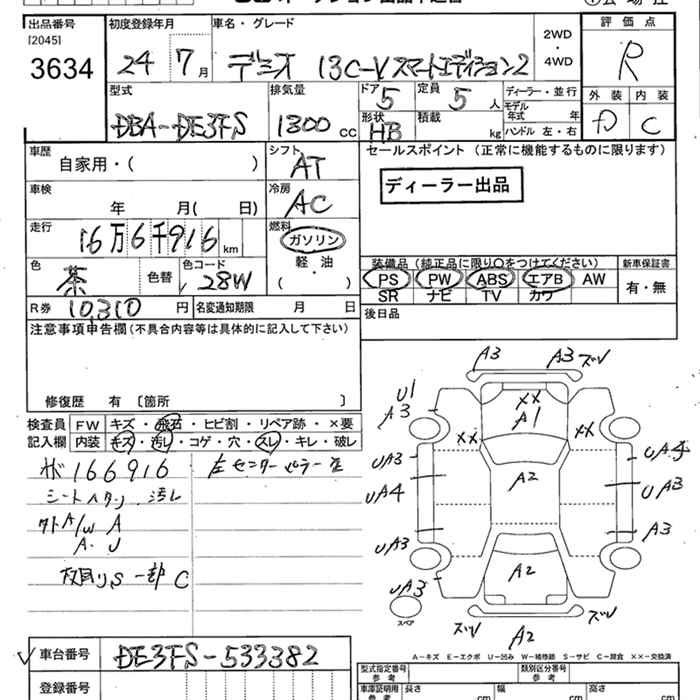 出品番号 初度登録年月 車名・グレード 2WD・4WD 評価点
[2045]
3634 24 7月 デミオ 13C-V スマートエディション2 R
型式 排気量 ドア 5 定員 5人 ディーラー・並行 外装 内装
モデル年式 年
DBA-DE3FS 1300cc 形状 HB 積載 kg ハンドル 左・右 D C
車歴 自家用・( ) シフト AT セールスポイント (正常に機能するものに限ります)
車検 年 月( 日) 冷房 AC ディーラー出品
走行 16万6千916km 燃料 ガソリン
軽・油
( )
色 茶 色替 色コード 28W
装備品 (純正品に限り○をつけてください) 新車保証書
PS PW ABS エアB AW 有・無
SR ナビ TV カワ
R券 10,310円 名変通知期限 月 日 後日品
注意事項申告欄 (不具合内容等は具体的に記入して下さい)
修復歴 有 [箇所 ]
検査員記入欄 FW キズ・飛石・ヒビ割・リペア跡・×要
内装 キズ・汚レ・コゲ・穴・スレ・キレ・破レ
166916 左センターピラー
シートヘタリ 汚レ
A/W A
A・U
S 一部 C
A3 A3 ズレ
U1 A3 XX A1
XX XX
UA3 UA4
A2
UA4 UA3
UA3 A3
A2
UA3
スペア
ズレ A2 ズレ
A-キズ E-エクボ U-凹み W-補修跡 S-サビ C-腐食 XX-交換済
車台番号 DE3FS-533382
型式指定番号 参考 類別区分番号 参考
登録番号
車庫証明用 参考 長さ cm 幅 cm 高さ cm